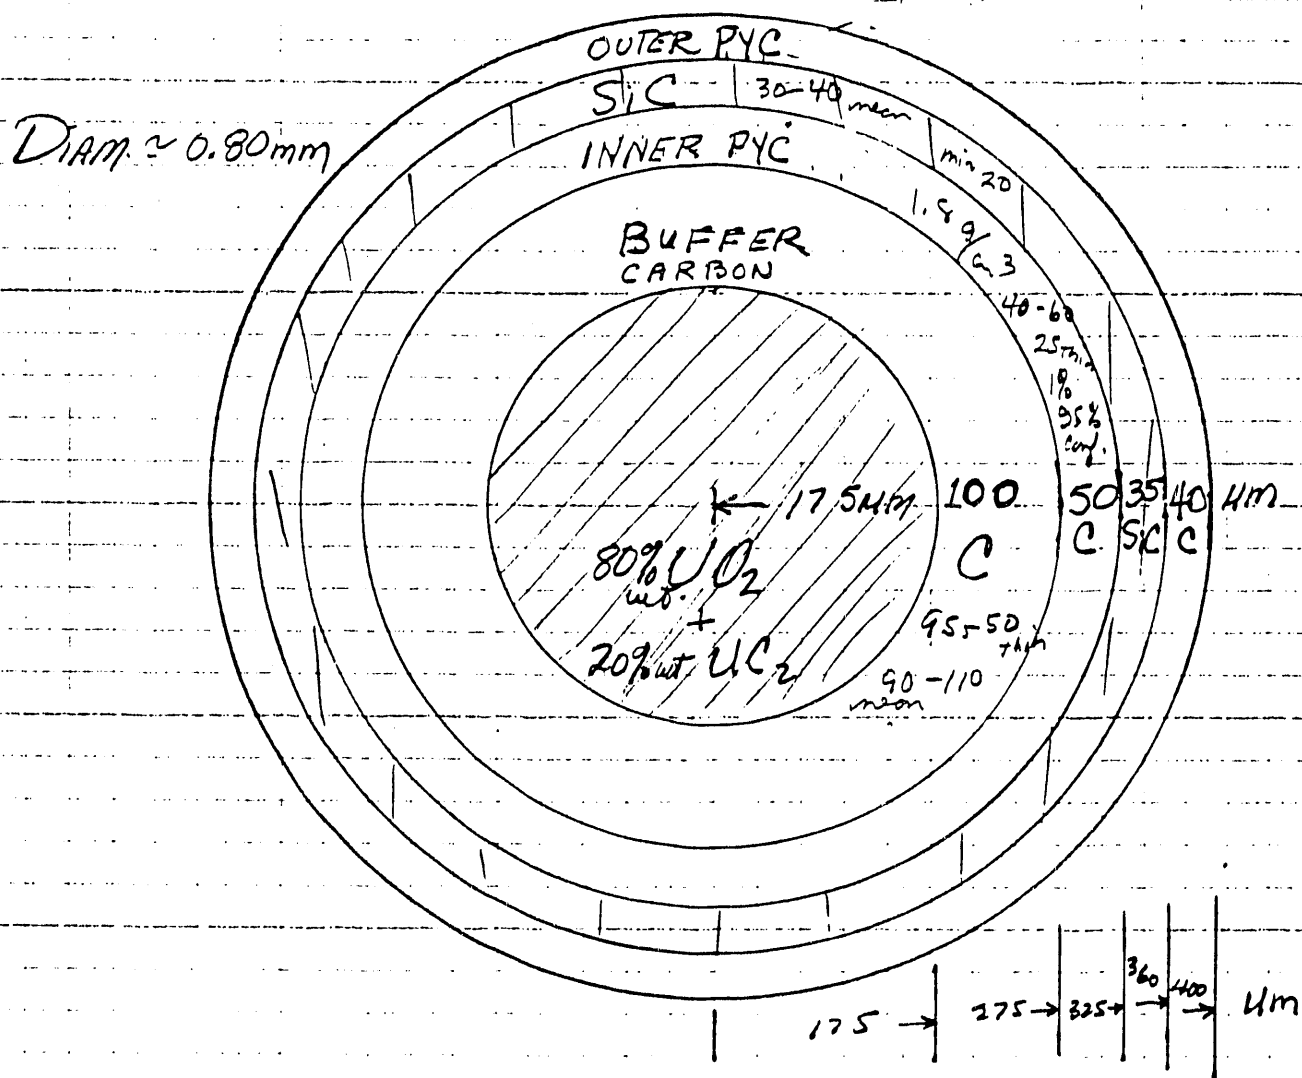 OUTER PYC
SiC 30-40 mean
min 20
DIAM. ≈ 0.80mm
INNER PYC
1.8 g/cm3
40-60
25 thin
1%
95%
conf.
BUFFER
CARBON
← 175 µm 100 50 35 40 µm
C C SiC C
80% UO2
wt.
+
20% wt UC2
50
thin
90-110
mean
175 → 275 → 325 → 360 → 400 → µm